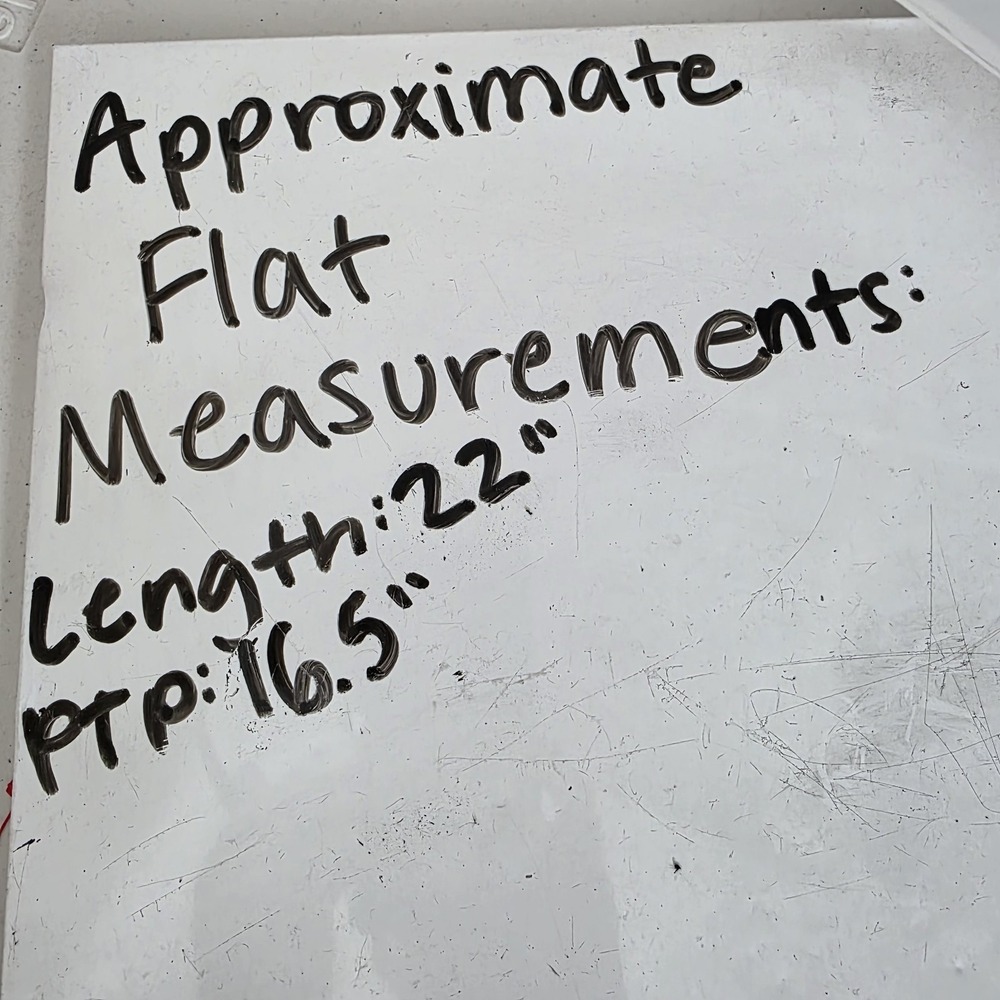 Approximate
Flat
Measurements:
Length: 22"
PTP: 16.5"